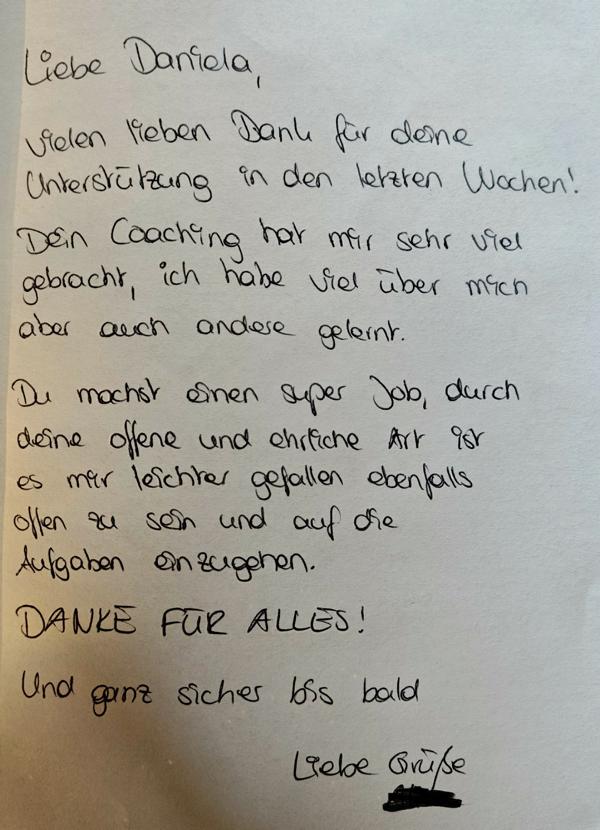 Liebe Daniela,
vielen lieben Dank für deine
Unterstützung in den letzten Wochen!
Dein Coaching hat mir sehr viel
gebracht, ich habe viel über mich
aber auch andere gelernt.
Du machst einen super Job, durch
deine offene und ehrliche Art ist
es mir leichter gefallen ebenfalls
offen zu sein und auf die
Aufgaben einzugehen.
DANKE FÜR ALLES!
Und ganz sicher bis bald
Liebe Grüße